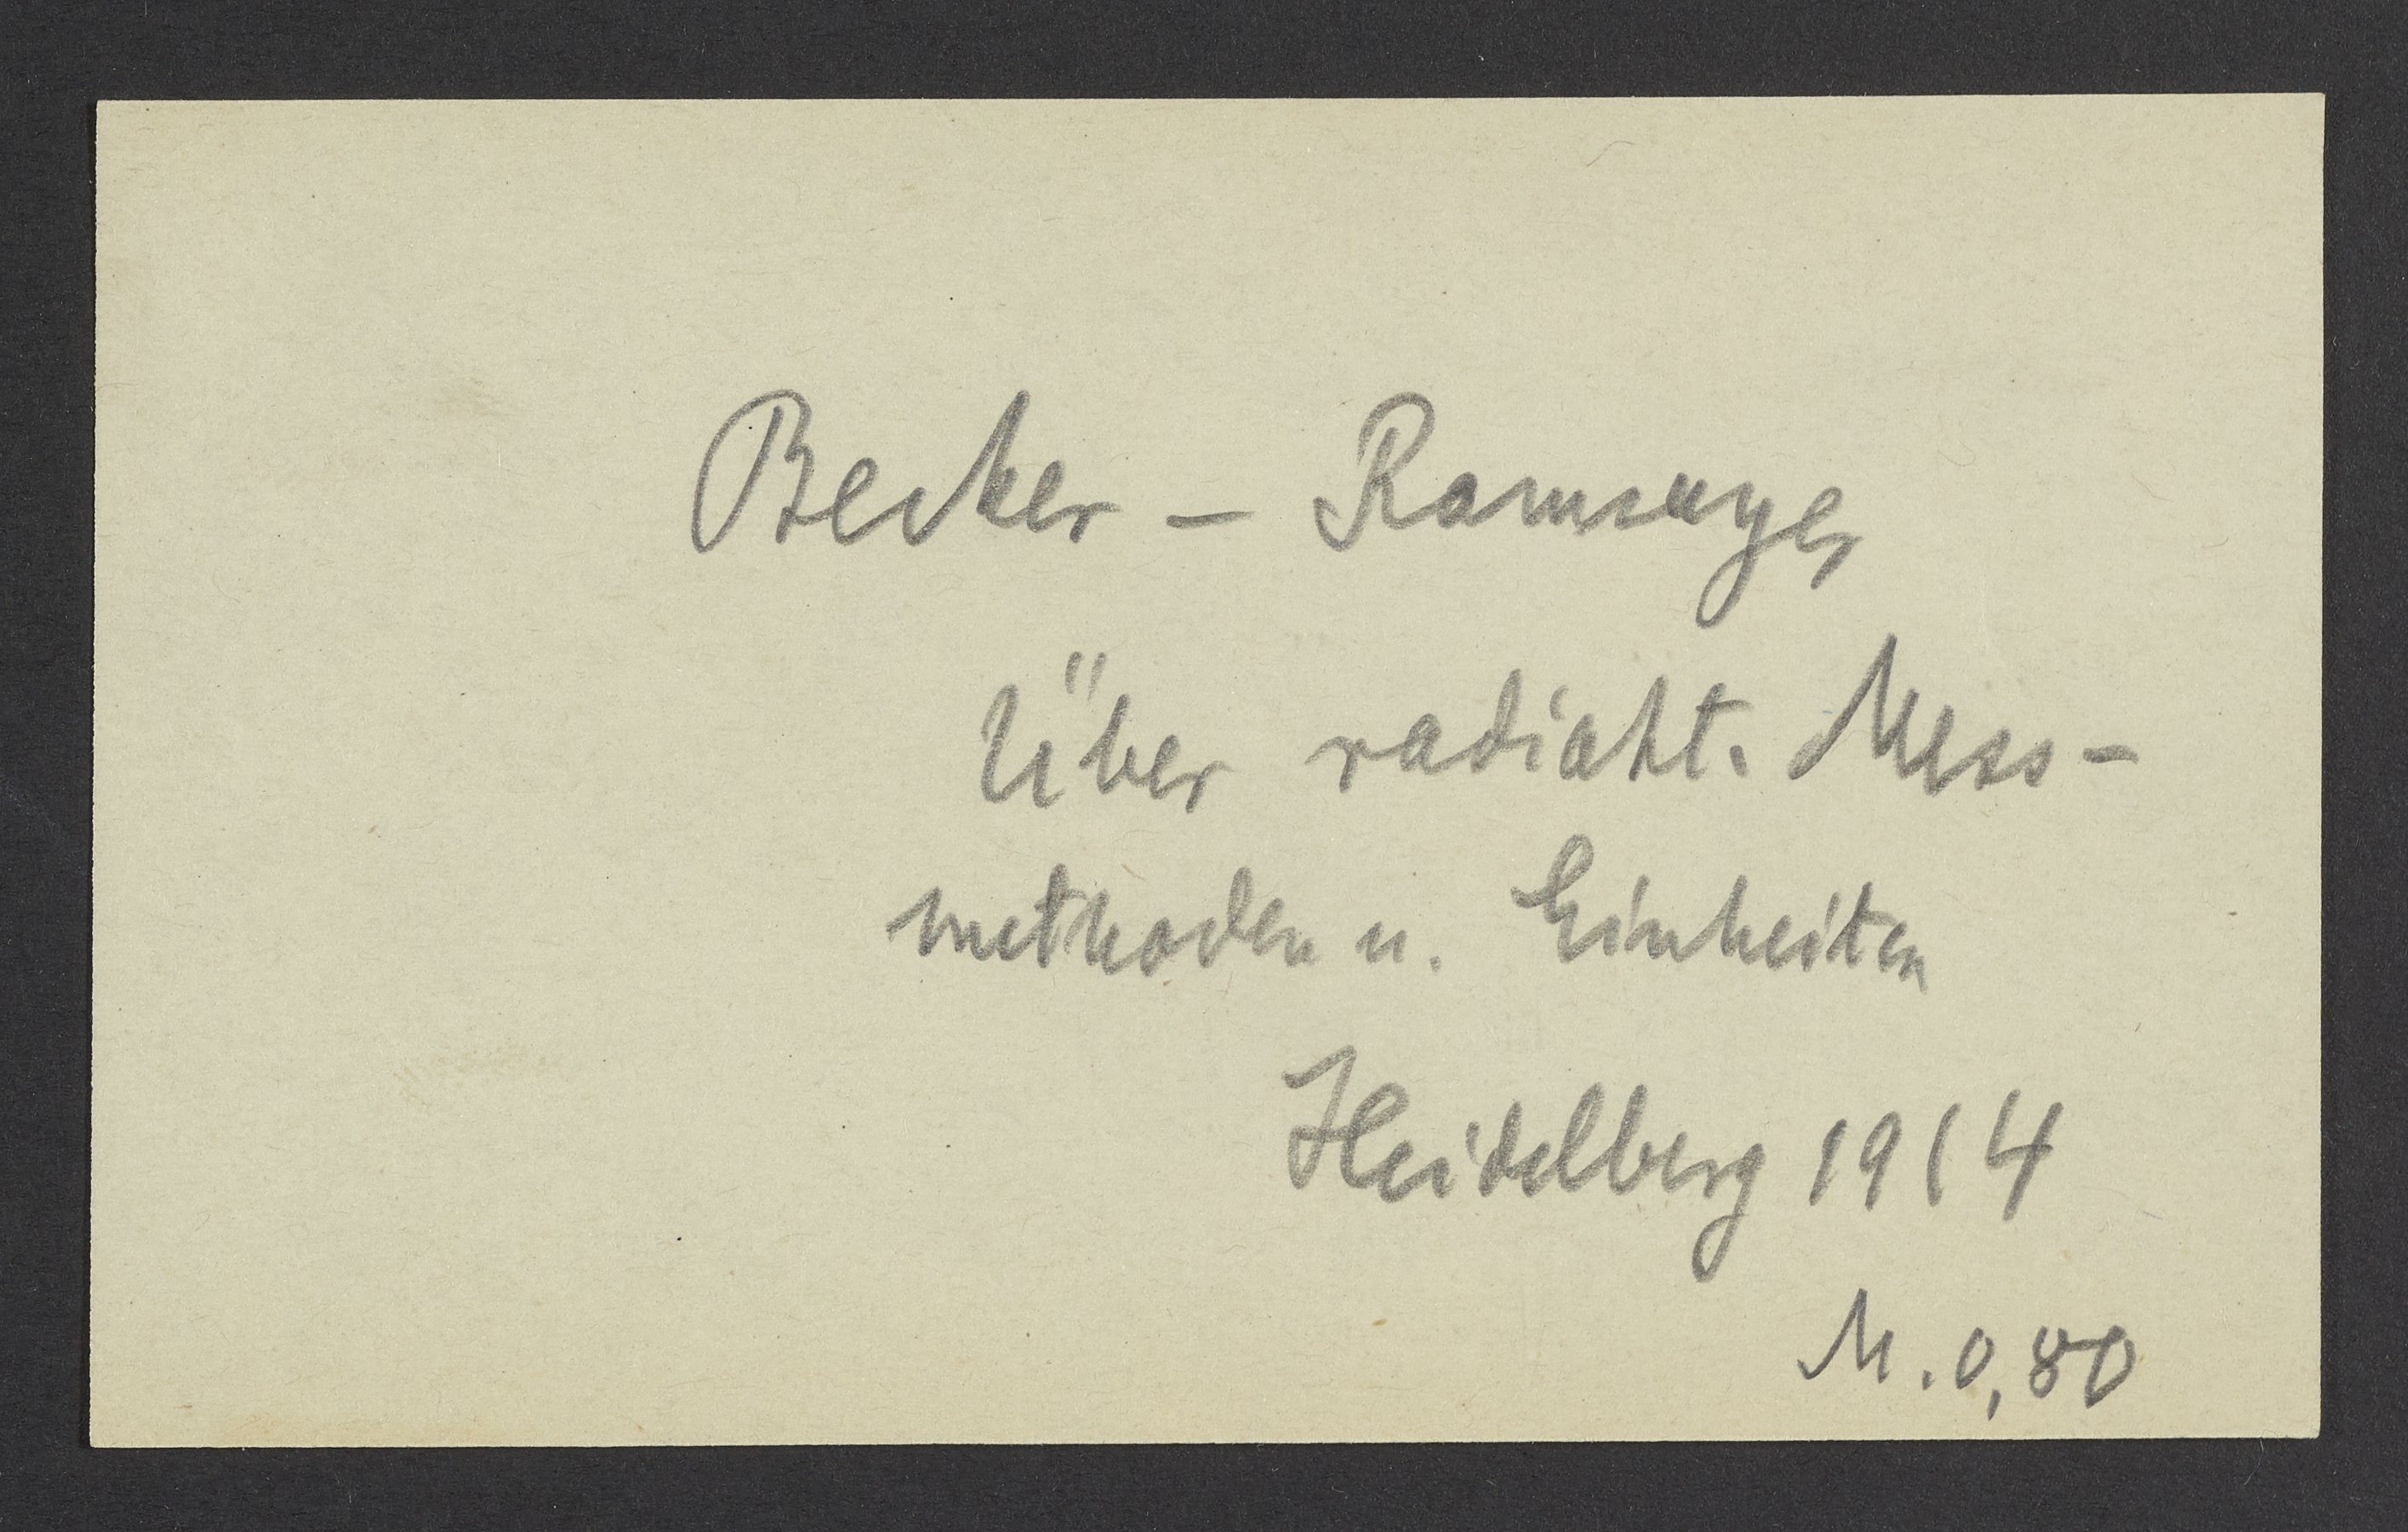 Becker – Ramsayer
Über radiakt. Mess-
methoden u. Einheiten
Heidelberg 1914
M. 0,80